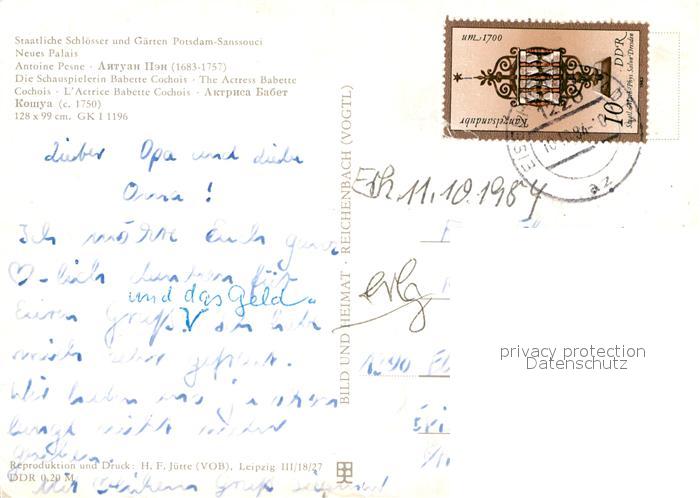 Staatliche Schlösser und Gärten Potsdam-Sanssouci
Neues Palais
Antoine Pesne · Антуан Пэн (1683-1757)
Die Schauspielerin Babette Cochois · The Actress Babette
Cochois · L'Actrice Babette Cochois · Актриса Бабет
Кошуа (c. 1750)
128 x 99 cm. GK I 1196
Lieber Opa und liebe
Oma!
Ich möchte Euch ganz
♡-lich danken für
und das Geld.
Euren Gruß V ich habe
mich sehr gefreut.
Wir haben uns ja schon
lange nicht mehr
gesehen.
Reproduktion und Druck: H. F. Jütte (VOB), Leipzig III/18/27
DDR 0,20 M
Mit Gruß
BILD UND HEIMAT · REICHENBACH (VOGTL)
um 1700
Kanzelsanduhr
DDR
10
1220
EISE
10 84-
az
Eh. 11.10.1984
erlg
1220 E
privacy protection
Datenschutz